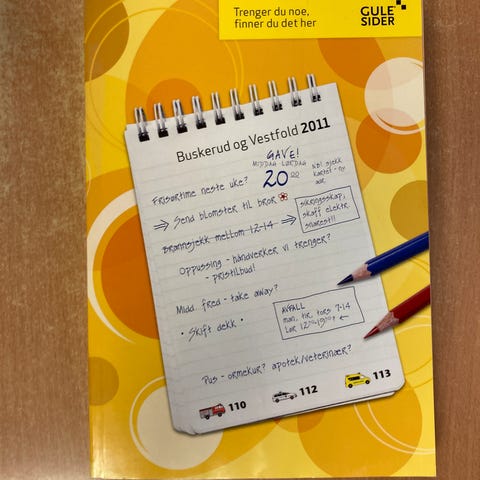 Trenger du noe,
finner du det her
GULE
SIDER
Buskerud og Vestfold 2011
GAVE!
MIDDAG LØRDAG
20⁰⁰
NB! sjekk
kartet - ny
adr.
Frisørtime neste uke?
⇒ Send blomster til bror
Brannsjekk mellom 12-14 ⇒
sikringsskap,
skaff elektr.
snarest!!
Oppussing - håndverker vi trenger?
- pristilbud!
Midd. fred - take away?
• Skift dekk •
AVFALL
man, tir, tors 7-14
Lør 12⁰⁰-19⁰⁰! ←
Pus - ormekur? apotek/veterinær?
110
112
113